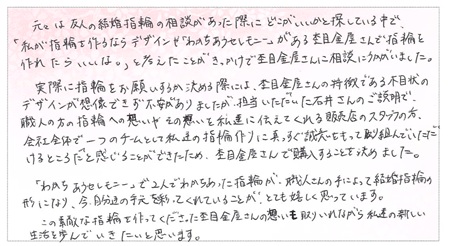 元々は友人の結婚指輪の相談があった際にどこがいいかと探している中で、
「私が指輪を作るならデザインや“わかちあうセレモニー”がある杢目金屋さんで指輪を
作れたらいいな。」と考えたことがきっかけで杢目金屋さんに相談にうかがいました。
実際に指輪をお願いするか決める際には、杢目金屋さんの特徴である木目状の
デザインが想像できず不安がありましたが、担当いただいた石井さんのご説明で、
職人の方の指輪への想いやその想いを私達に伝えてくれる販売店のスタッフの方、
会社全体で一つのチームとして私達の指輪作りに真っすぐ誠実をもって取り組んでいただ
けるところだと感じることができたため、杢目金屋さんで購入することを決めました。
「わかちあうセレモニー」で2人でわかちあった指輪が、職人さんの手によって結婚指輪の
形になり、今、自分達の手元を彩ってくれていることが、とても嬉しく思っています。
この素敵な指輪を作ってくださった杢目金屋さんの想いも取りいれながら私達の新しい
生活を歩んでいきたいと思います。